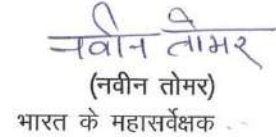 नवीन तोमर
(नवीन तोमर)
भारत के महासर्वेक्षक